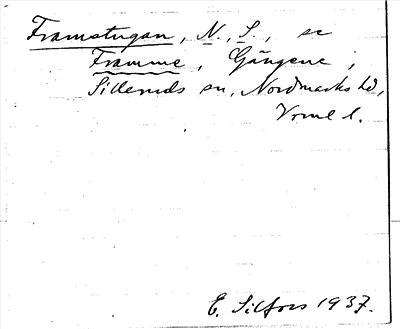 Framstugan, N., S., se
Framme, Gängene;
Silleruds sn, Nordmarks hd,
Vrml l.
E. Silfors 1937.